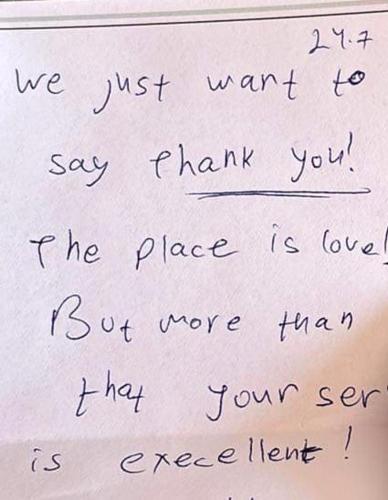 24.7
we just want to
say thank you!
The place is love
But more than
that your ser
is execellent!